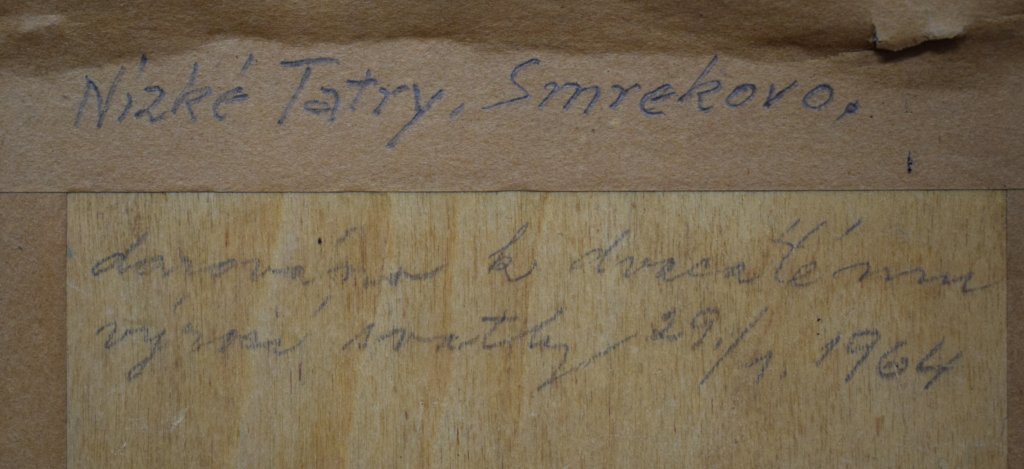 Nízké Tatry, Smrekovo.
darováno k dvacátému
výročí svatby 29./1. 1964